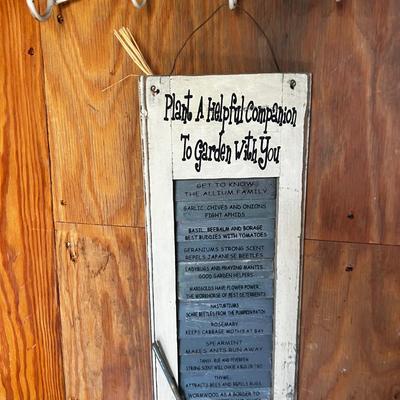 Plant A Helpful Companion
To Garden With You
GET TO KNOW
THE ALLIUM FAMILY
GARLIC, CHIVES AND ONIONS
FIGHT APHIDS
BASIL, BEEBALM AND BORAGE
BEST BUDDIES WITH TOMATOES
GERANIUMS STRONG SCENT
REPELS JAPANESE BEETLES
LADYBUGS AND PRAYING MANTIS
GOOD GARDEN HELPERS
MARIGOLDS HAVE FLOWER POWER,
THE WORKHORSE OF PEST DETERRENTS
NASTURTIUMS
SCARE BEETLES FROM THE PUMPKIN PATCH
ROSEMARY
KEEPS CABBAGE MOTHS AT BAY
SPEARMINT
MAKES ANTS RUN AWAY
TANSY, RUE AND FEVERFEW
STRONG SCENT WILL CHASE A BUG OR TWO
THYME
ATTRACTS BEES AND REPELS BUGS
WORMWOOD AS A BORDER TO